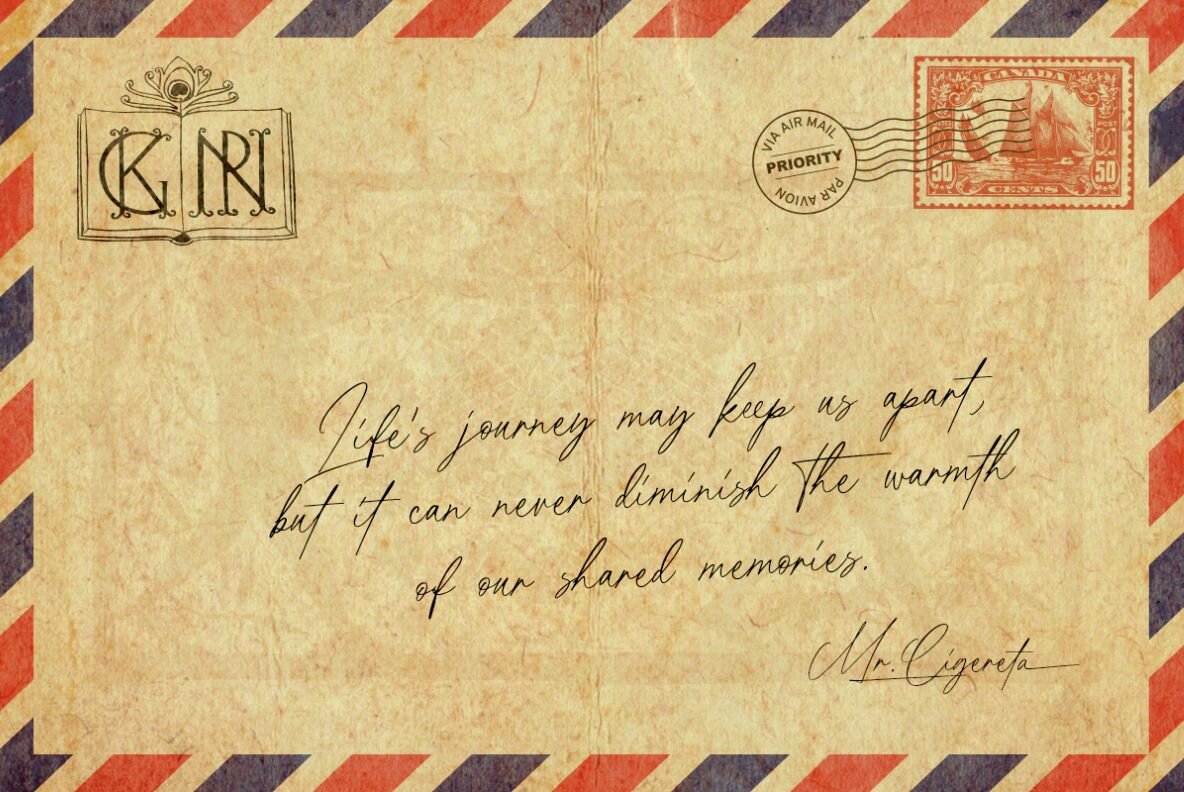 GK NR
VIA AIR MAIL
PRIORITY
PAR AVION
CANADA
POSTES
POST
50
50
CENTS
Life's journey may keep us apart,
but it can never diminish the warmth
of our shared memories.
Mr. Cigereta